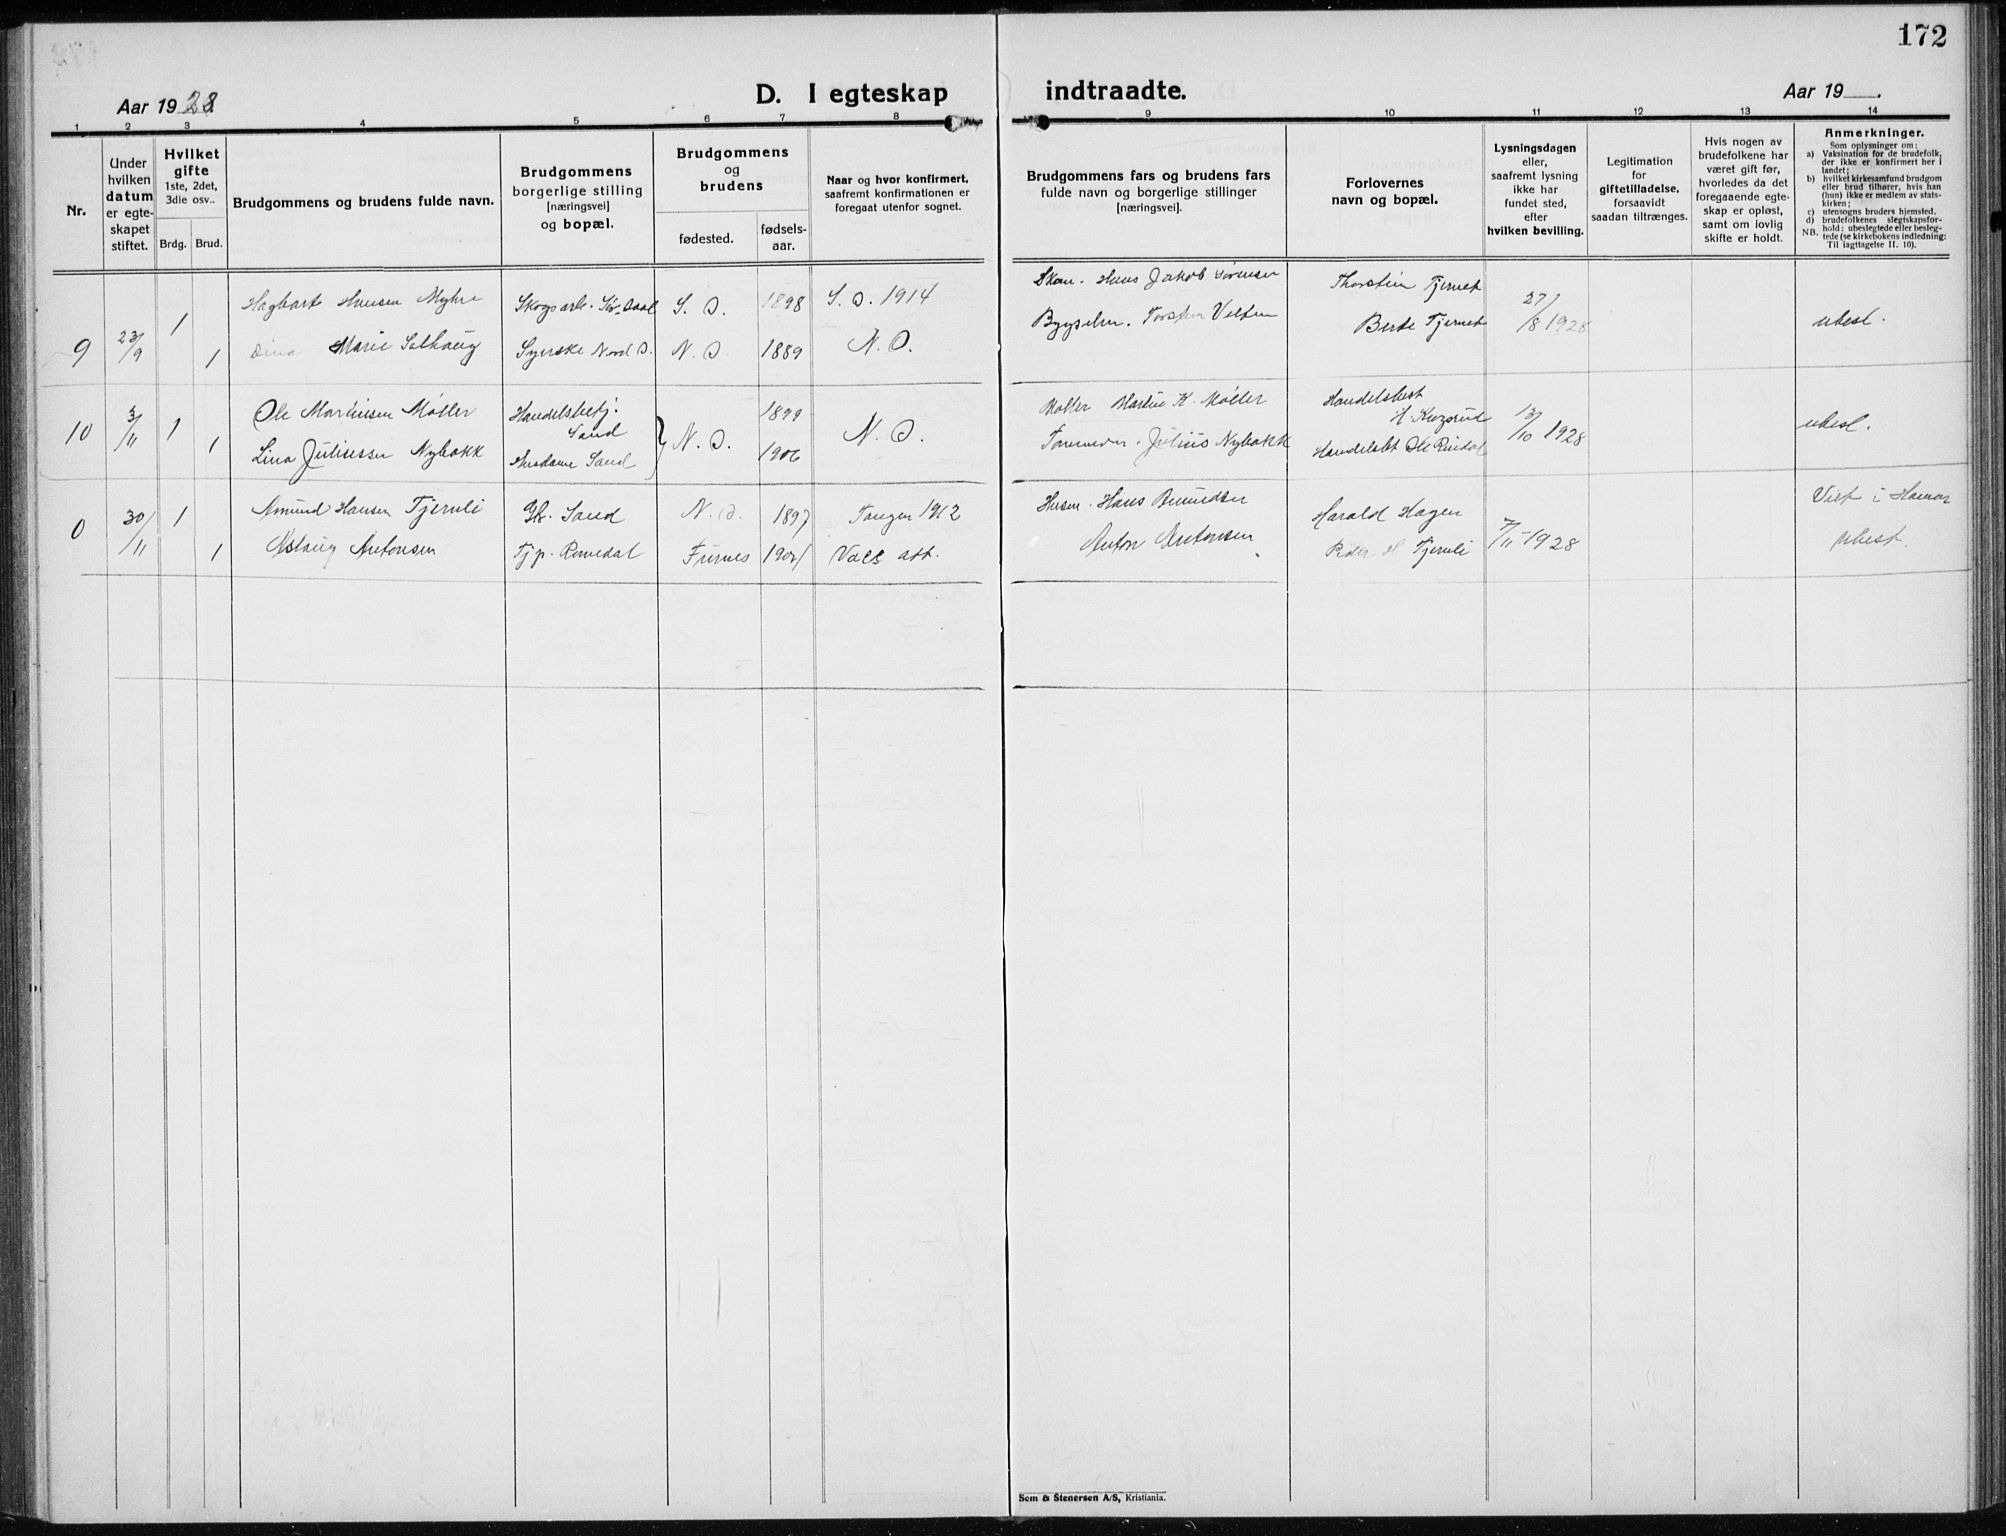 172
Aar 1928.
D. I egteskap indtraadte.
Aar 19___.
1 2 3 4 5 6 7 8 9 10 11 12 13 14
Nr.
Under hvilken datum er egteskapet stiftet.
Hvilket gifte
1ste, 2det, 3die osv..
Brdg. Brud.
Brudgommens og brudens fulde navn.
Brudgommens borgerlige stilling [næringsvei] og bopæl.
Brudgommens og brudens
fødested.
fødselsaar.
Naar og hvor konfirmert, saafremt konfirmationen er foregaat utenfor sognet.
Brudgommens fars og brudens fars fulde navn og borgerlige stillinger [næringsvei].
Forlovernes navn og bopæl.
Lysningsdagen eller, saafremt lysning ikke har fundet sted, efter hvilken bevilling.
Legitimation for giftetilladelse, forsaavidt saadan tiltrænges.
Hvis nogen av brudefolkene har været gift før, hvorledes da det foregaaende egteskap er opløst, samt om lovlig skifte er holdt.
Anmerkninger.
Som oplysninger om:
a) Vaksination for de brudefolk, der ikke er konfirmert her i landet;
b) hvilket kirkesamfund brudgom eller brud tilhører, hvis han (hun) ikke er medlem av statskirken;
c) utensogns bruders hjemsted.
d) brudefolkenes slegtskapsforhold: ubeslegtede eller beslegtede (se kirkebokens indledning: NB. Til iagttagelse II. 10).
Hagbart Hansen Myhre Skogsarb. S. O. 1898 S. O. 1914 Hans Jakob Sørensen Thorstein Tjernet 27/8 1928 ubesl.
9 23/9 1 1 Marie Solhaug Syerske Nord O. N. O. 1889 N. O. Torsten Berte Tjernet
10 3/11 1 Ole Martinsen Møller Handelsbetj. Sand N. O. 1899 N. O. Møller Martin K. Møller Handelsbest 13/10 1928 ubesl.
1 Lina Juliussen Nybakk Sand 1906 Julius Nybakk Ole Rindal
0 30/11 1 Amund Hansen Tjernli Sand N. O. 1897 Tangen 1912 Hans Harald Hagen 7/11 1928 Viet i Hamar
1 Aslaug Antonsen Tjp. Romedal Furnes Vals att. Anton Antonsen Peder H Tjernli ubesl.
Sem & Stenersen A/S, Kristiania.